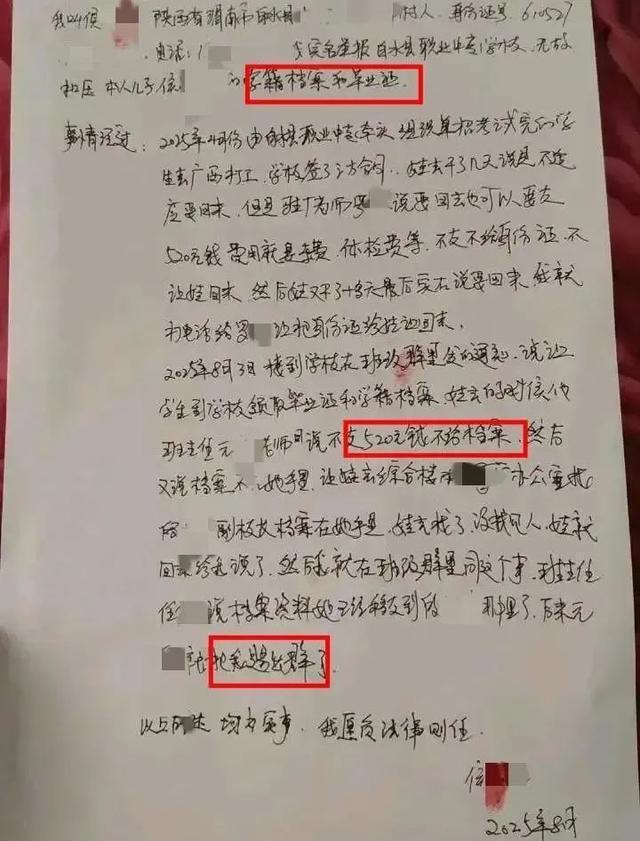 我叫侯 陕西省渭南市白水县 村人，身份证号：610527
电话：1 实名举报白水县职业中专学校，无故
扣压本人儿子 的学籍档案和毕业证。
事情经过：2025年4月份由白水县职业中专牵头组织单招考试完的学
生去广西打工，学校签了 合同，娃去干了几天说是不适
应要回来，但是班 老师 说要回去也可以要交
520元钱费用就是车费、体检费等，不交不给身份证，不
让娃回来，然后娃又干了十多天最后实在说要回来 我就
打电话给 让把身份证给娃让回来。
2025年8月3日接到学校在班级群里发的通知，说让
学生到学校领取毕业证和学籍档案，娃去的时候他
班主任 老师 说不交520元钱不给档案，然后
又说档案不 她手里，让娃去综合楼 办公室找
的 副校长档案在她手里，娃去找了，没找见人，娃就
回来给我说了，然后我就在班级群里问这个事，班主任
任 说档案资料她已经移交到 那里了，后来
把我踢出群了。
以上所述 均为实事，我愿负法律责任。
2025年8月